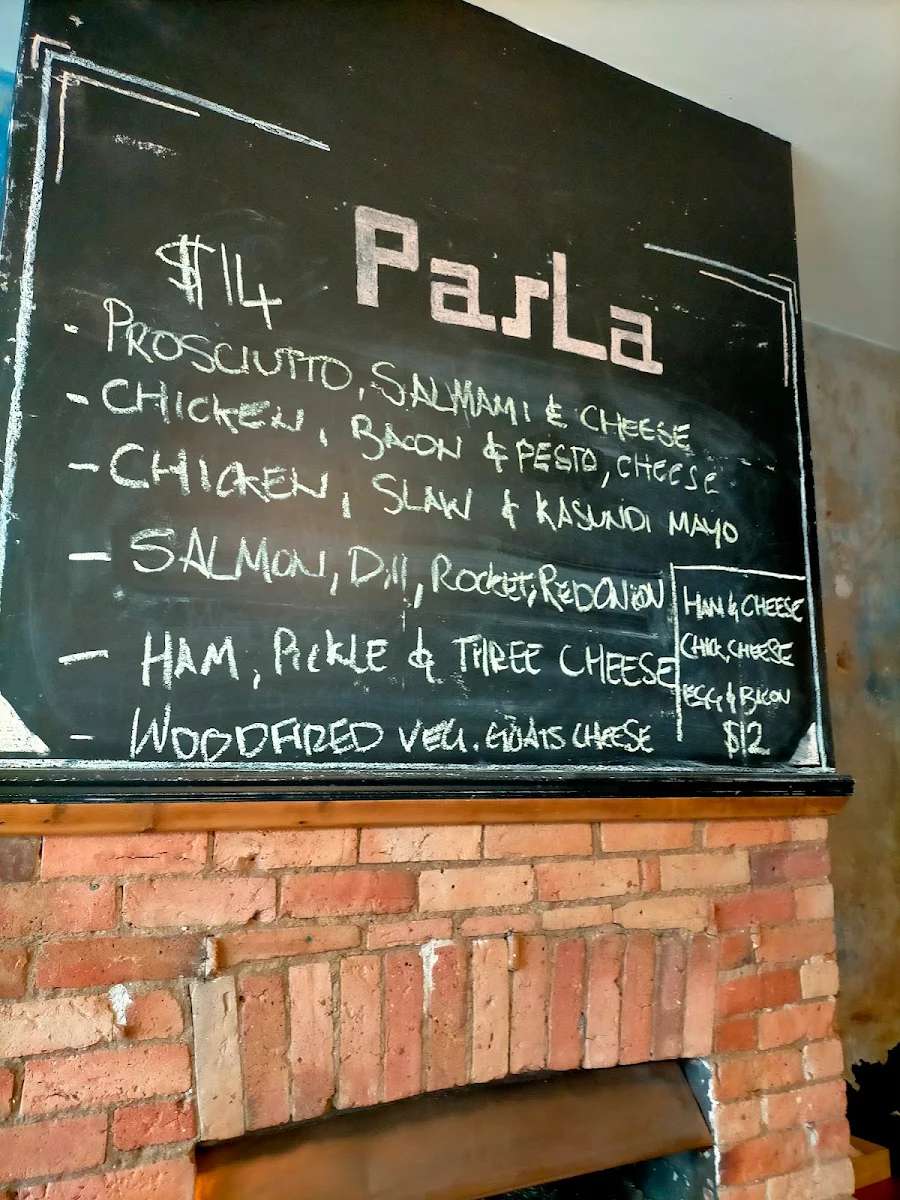 ParLa
$14
- PROSCIUTTO, SALMAMI & CHEESE
- CHICKEN, BACON & PESTO, CHEESE
- CHICKEN, SLAW & KASUNDI MAYO
- SALMON, Dill, Rocket, RED ONION
- HAM, PICKLE & THREE CHEESE
- WOODFIRED VEG. GOATS CHEESE
HAM & CHEESE
CHICK, CHEESE
EGG & BACON
$12